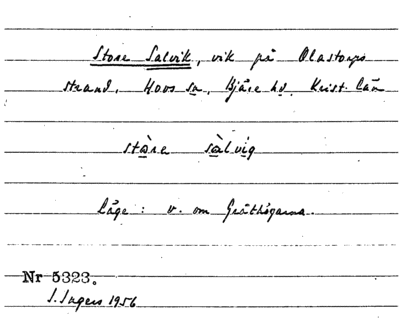 Store Salvik, vik på Olastorps
strand, Hovs sn, Bjäre hd. Krist. län
stɑ̀re sɑ̀lvig
Läge: v. om Gråthögarna.
Nr 5323.
S. Ingers 1956